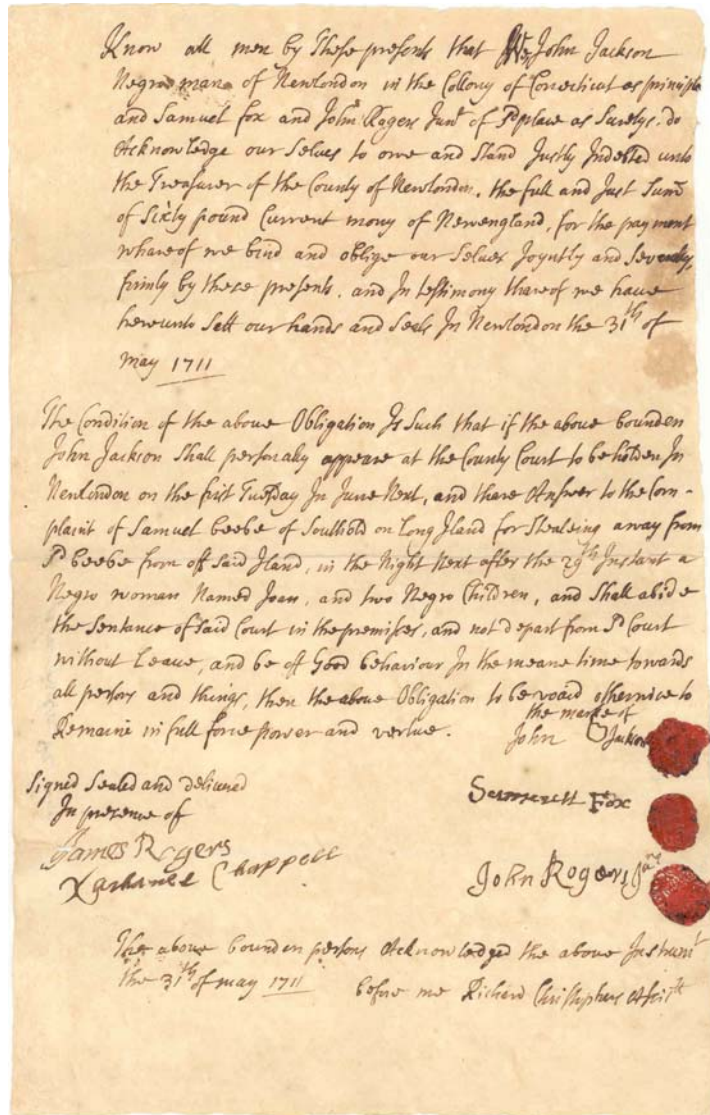 Know all men by These presents that We John Jackson
Negro man of Newlondon in the Collony of Conecticut as principle
and Samuel fox and John Rogers Junr of sd place as Suretys. do
Acknowledge our Selves to owe and Stand Justly Indebted unto
the Treasurer of the County of Newlondon. the full and Just Sume
of Sixty pound Current mony of Newengland, for the payment
whareof we bind and oblige our Selves Joyntly and Severally,
firmly by these presents. and In testimony thareof we have
hereunto Sett our hands and Seels In Newlondon the 31th of
may 1711
The Condition of the above Obligation Is Such that if the above bounden
John Jackson Shall personally appeare at the County Court to be holden In
Newlondon on the first Tuesday In June Next, and thare Answer to the Com-
plaint of Samuel beebe of Southold on Long Iland for Stealeing away from
sd beebe from off said Iland, in the Night Next after the 29th Instant a
Negro woman Named Joan, and two Negro Children, and Shall abide
the Sentance of said Court in the premises, and not depart from sd Court
without Leave, and be off Good behaviour In the meane time towards
all persons and things, then the above Obligation to be voaid otherwice to
Remaine in full force power and vertue.
the marke of
John Jackson
Signed Sealed and delivered
In presence of
Samuell Fox
James Rogers
Nathaniel Chappell
John Rogers Junr
The above bounden persons Acknowledged the above Instrumt
the 31th of may 1711 before me Richard Christophers Assistt